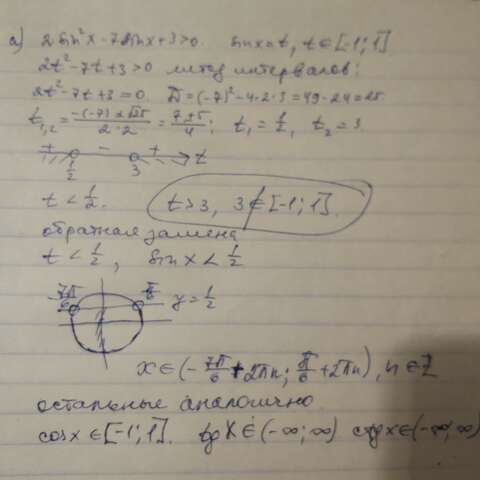 а) 2sin²x - 7sinx + 3 > 0. sinx = t, t ∈ [-1; 1]
2t² - 7t + 3 > 0 метод интервалов:
2t² - 7t + 3 = 0. D = (-7)² - 4·2·3 = 49 - 24 = 25.
t₁,₂ = (-(-7) ± √25)/(2·2) = (7 ± 5)/4; t₁ = 1/2, t₂ = 3.
+ - + t
1/2 3
t < 1/2. t > 3, 3 ∉ [-1; 1].
обратная замена
t < 1/2, sin x < 1/2
7π/6 π/6 y = 1/2
x ∈ (-7π/6 + 2πn; π/6 + 2πn), n ∈ Z
остальные аналогично
cosx ∈ [-1; 1]. tg x ∈ (-∞; ∞) ctgx ∈ (-∞; ∞)